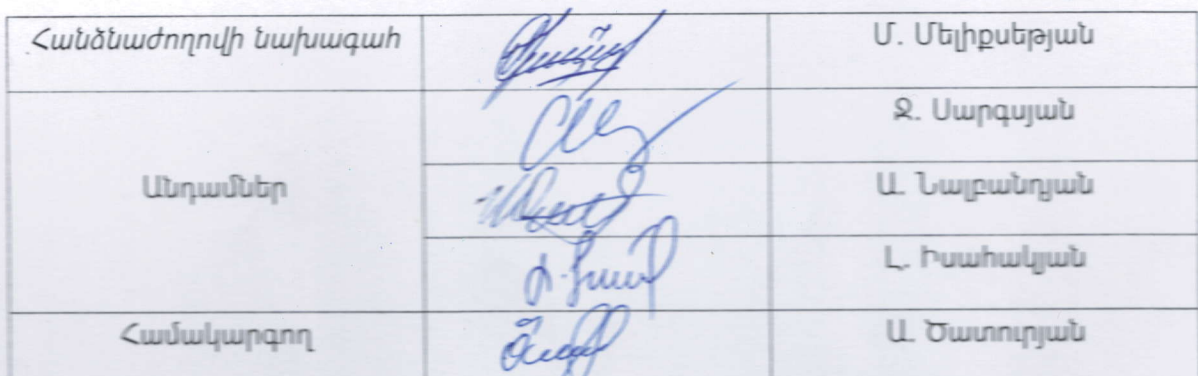 Հանձնաժողովի նախագահ
Մ. Մելիքսեթյան
Ջ. Սարգսյան
Անդամներ
Ա. Նալբանդյան
Լ. Իսահակյան
Համակարգող
Ա. Ծատուրյան